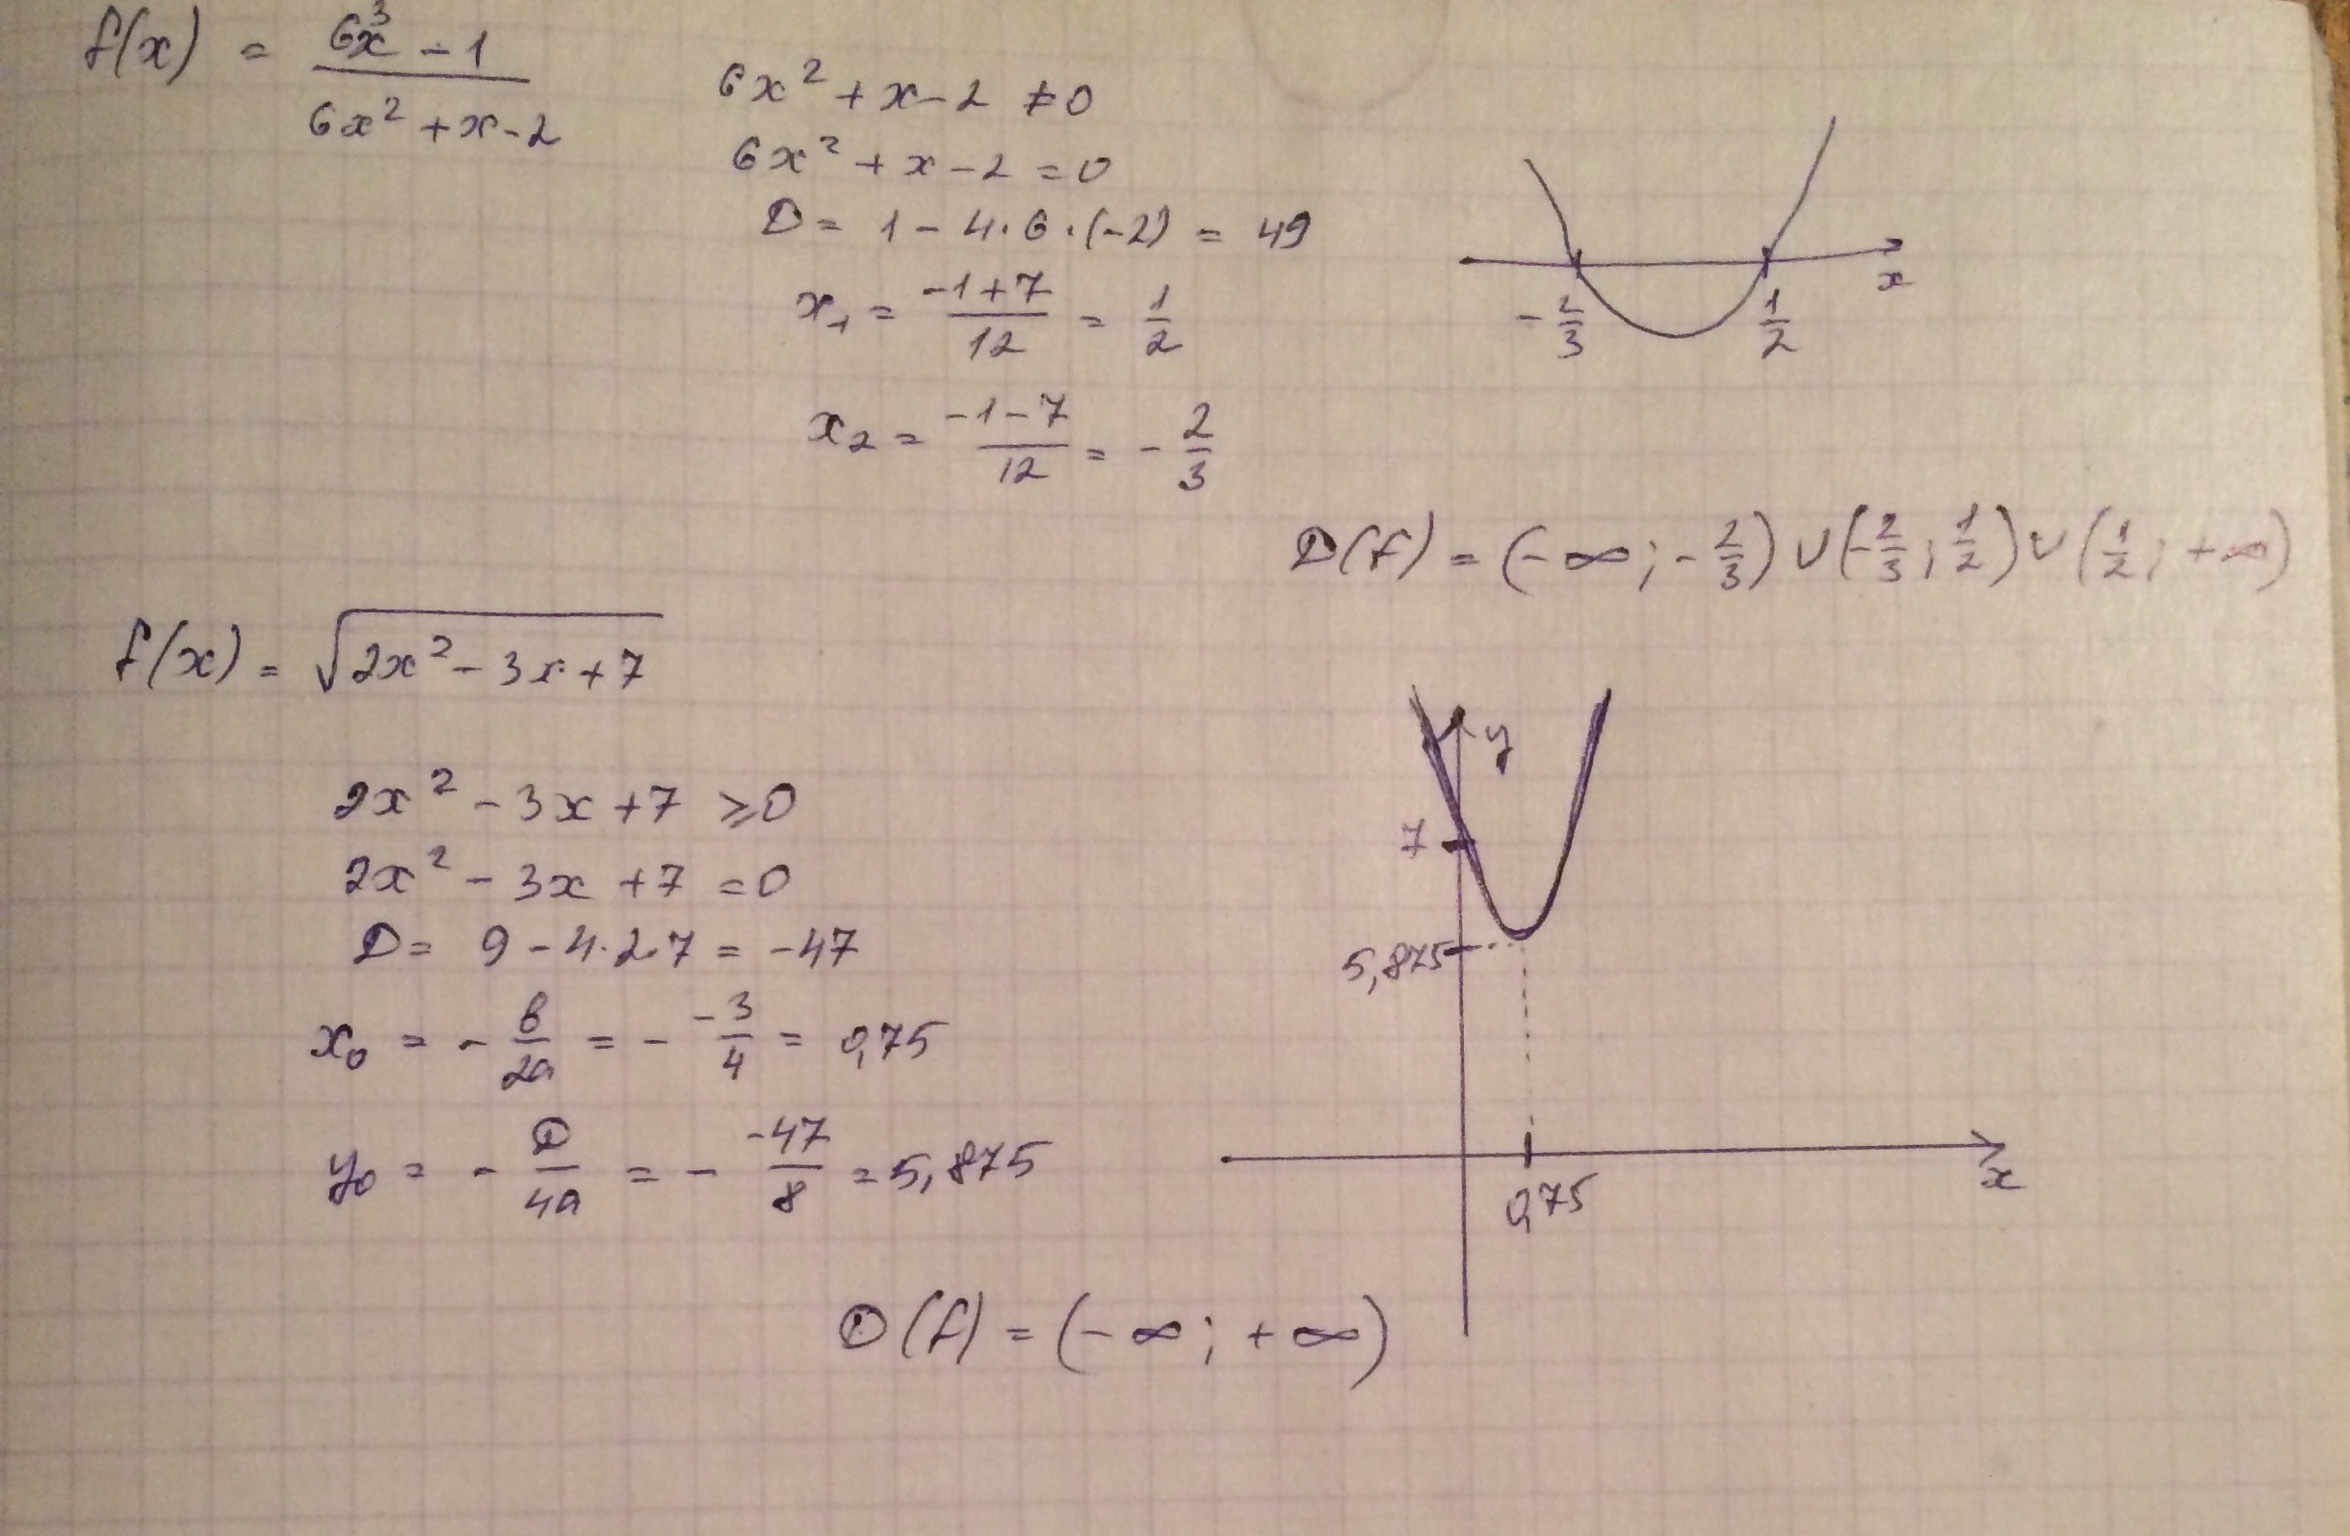 f(x) = (6x³ - 1)/(6x² + x - 2)
6x² + x - 2 ≠ 0
6x² + x - 2 = 0
D = 1 - 4·6·(-2) = 49
x₁ = (-1+7)/12 = 1/2
x₂ = (-1-7)/12 = - 2/3
x
- 2/3 1/2
D(f) = (-∞; - 2/3) ∪ (- 2/3; 1/2) ∪ (1/2; +∞)
f(x) = √(2x² - 3x + 7)
2x² - 3x + 7 ≥ 0
2x² - 3x + 7 = 0
D = 9 - 4·2·7 = -47
x₀ = - b/2a = - -3/4 = 0,75
y₀ = - D/4a = - -47/8 = 5,875
y
7
5,875
x
0,75
D(f) = (-∞; +∞)